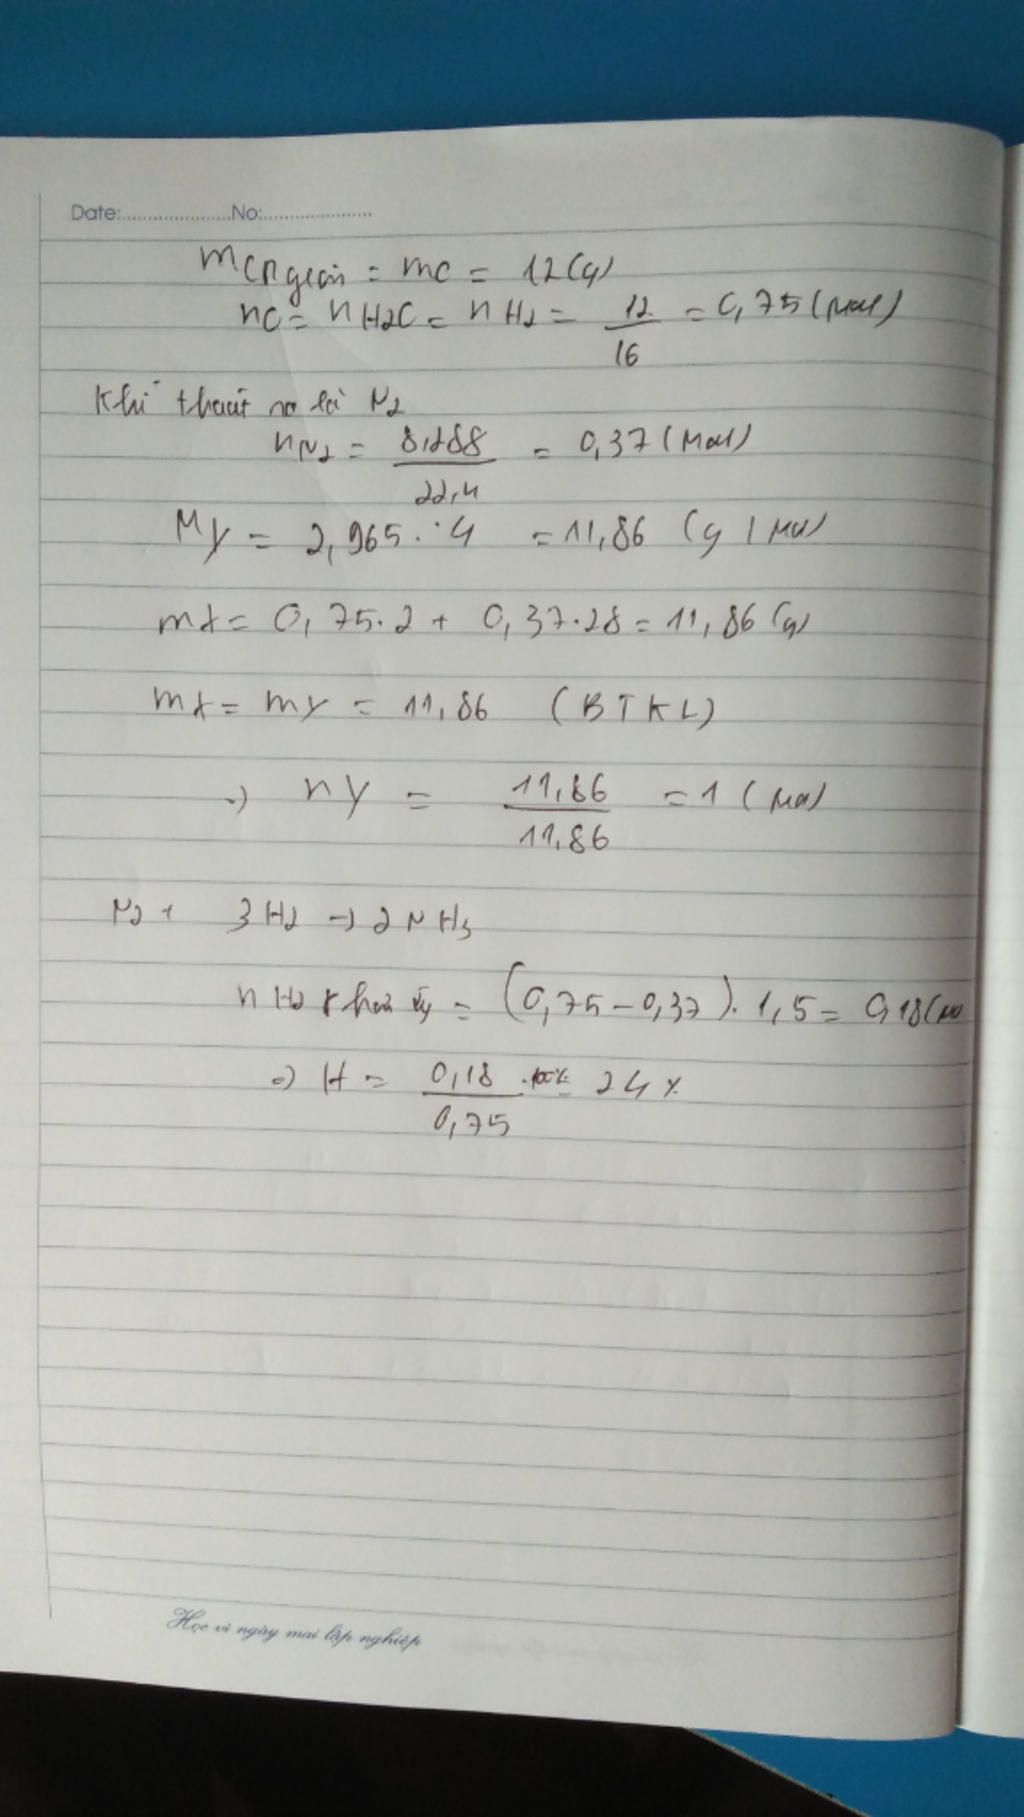 Date:.....................No:.....................
mO giảm = mO = 12(g)
nO = nH2O = nH2 = 12/16 = 0,75 (mol)
Khí thoát ra là N2
nN2 = 8,288/22,4 = 0,37 (mol)
My = 2,965 . 4 = 11,86 (g / mol
mx = 0,75.2 + 0,37.28 = 11,86 (g)
mx = my = 11,86 (BTKL)
=) ny = 11,86/11,86 = 1 (mol
N2 + 3H2 -> 2NH3
nH2 = (0,75 - 0,37). 1,5 = 0,18(mo
=) H = 0,18/0,75 .100% = 24%
Học vì ngày mai lập nghiệp